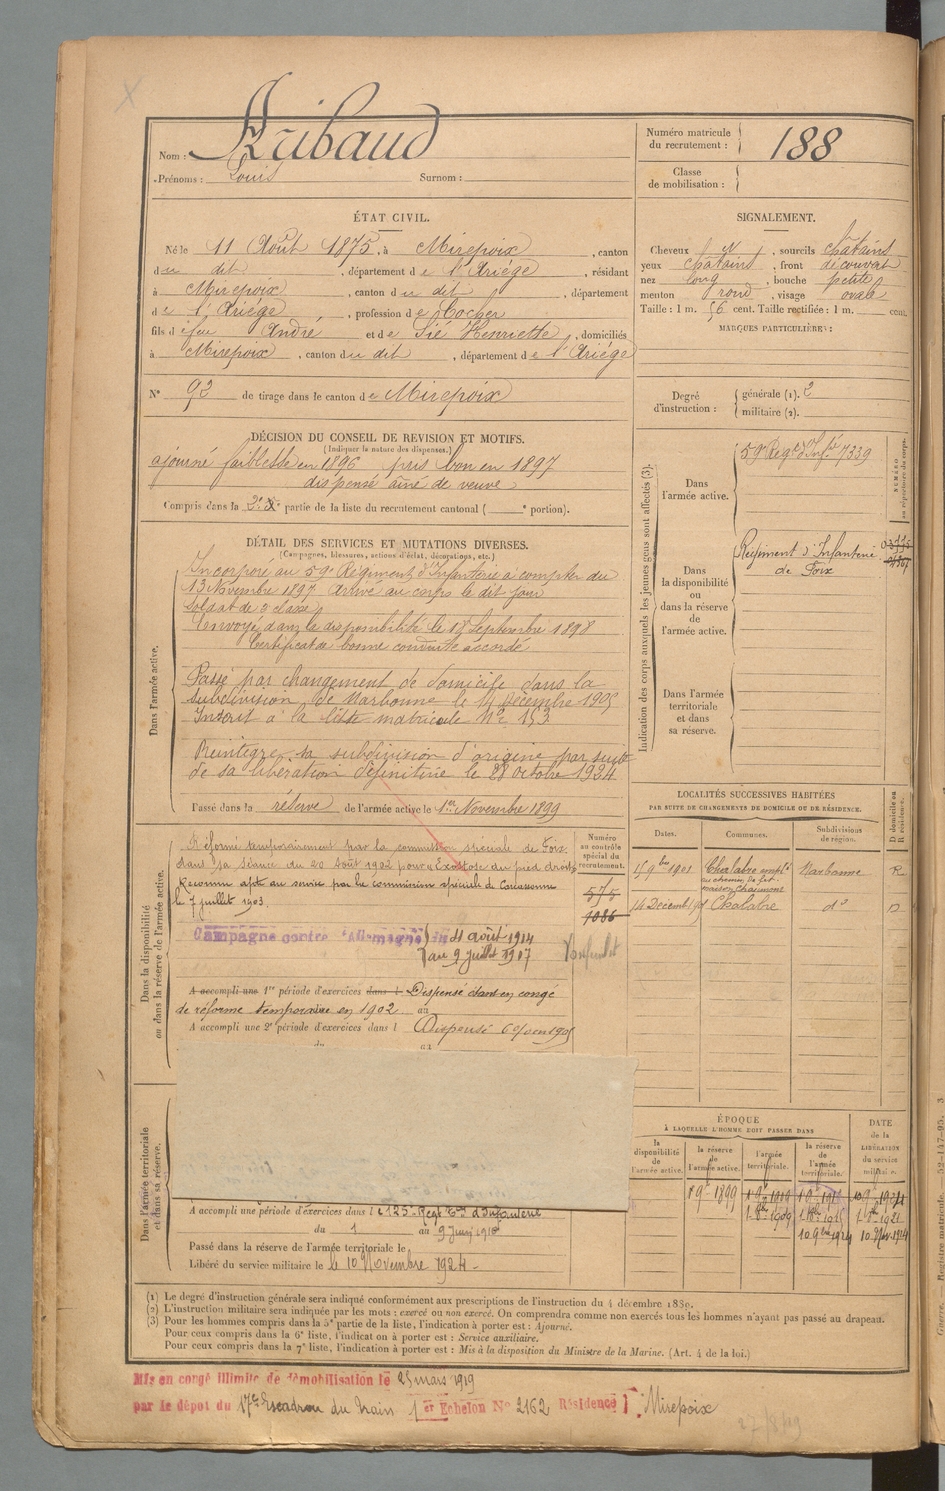 Nom : Aribaud
Prénoms : Louis Surnom :
Numéro matricule du recrutement : 188
Classe de mobilisation :
ÉTAT CIVIL.
Né le 11 Août 1875, à Mirepoix, canton
du dit, département de l'Ariége, résidant
à Mirepoix, canton du dit, département
de l'Ariége, profession de Cocher
fils de feu André et de Sié Henriette, domiciliés
à Mirepoix, canton du dit, département de l'Ariége
SIGNALEMENT.
Cheveux N, sourcils châtains
yeux châtains, front découvert
nez long, bouche petite
menton rond, visage ovale
Taille : 1 m. 56 cent. Taille rectifiée : 1 m. cent.
MARQUES PARTICULIÈRES :
N° 92 de tirage dans le canton de Mirepoix
Degré d'instruction : générale (1). 2
militaire (2).
DÉCISION DU CONSEIL DE REVISION ET MOTIFS.
(Indiquer la nature des dispenses.)
ajourné faiblesse en 1896 pris bon en 1897
dispensé ainé de veuve
Compris dans la 2e partie de la liste du recrutement cantonal ( e portion).
Indication des corps auxquels les jeunes gens sont affectés (3).
NUMÉRO au répertoire du corps.
Dans l'armée active. 59e Regt d'Infie 7339
Dans la disponibilité ou dans la réserve de l'armée active. Régiment d'Infanterie
de Foix
Dans l'armée territoriale et dans sa réserve.
DÉTAIL DES SERVICES ET MUTATIONS DIVERSES.
(Campagnes, blessures, actions d'éclat, décorations, etc.)
Dans l'armée active.
Incorporé au 59e Régiment d'Infanterie à compter du
13 Novembre 1897 Arrivé au corps le dit jour
soldat de 2 classe
Envoyé dans la disponibilité le 18 Septembre 1898
Certificat de bonne conduite accordé
Passé par changement de domicile dans la
subdivision de Narbonne le 14 Décembre 1905
Inscrit à la liste matricule No 153
Réintégre sa subdivision d'origine par suite
de sa libération définitive le 28 octobre 1924
Passé dans la réserve de l'armée active le 1er Novembre 1899
Dans la disponibilité ou dans la réserve de l'armée active.
Réformé temporairement par la commission spéciale de Foix
dans sa séance du 20 Août 1902 pour "Exostose du pied droit"
Reconnu apte au service par la commission spéciale de Carcassonne
le 7 juillet 1903.
Campagne contre l'Allemagne du 4 août 1914
au 9 juillet 1917
A accompli une 1re période d'exercices dans l Dispensé étant en congé
de réforme temporaire en 1902 au
A accompli une 2e période d'exercices dans l Dispensé
Numéro au contrôle spécial du recrutement.
575
1086
LOCALITÉS SUCCESSIVES HABITÉES
PAR SUITE DE CHANGEMENTS DE DOMICILE OU DE RÉSIDENCE.
Dates. Communes. Subdivisions de région. D domicile ou R résidence.
15 9bre 1901 Chalabre emplé au chemin de fer Narbonne R
14 Décemb 1905 Chalabre do D
Dans l'armée territoriale et dans sa réserve.
A accompli une période d'exercices dans l e 125e Regt Ter d'Infanterie
du 1 au 9 Juin 1910
Passé dans la réserve de l'armée territoriale le
Libéré du service militaire le le 10 Novembre 1924
ÉPOQUE
À LAQUELLE L'HOMME DOIT PASSER DANS
la disponibilité de l'armée active. la réserve de l'armée active. l'armée territoriale. la réserve de l'armée territoriale. DATE de la LIBÉRATION du service militaire.
(1) Le degré d'instruction générale sera indiqué conformément aux prescriptions de l'instruction du 4 décembre 1889.
(2) L'instruction militaire sera indiquée par les mots : exercé ou non exercé. On comprendra comme non exercés tous les hommes n'ayant pas passé au drapeau.
(3) Pour les hommes compris dans la 5e partie de la liste, l'indication à porter est : Ajourné.
Pour ceux compris dans la 6e liste, l'indication à porter est : Service auxiliaire.
Pour ceux compris dans la 7e liste, l'indication à porter est : Mis à la disposition du Ministre de la Marine. (Art. 4 de la loi.)
Mis en congé illimité de démobilisation le 25 mars 1919
par le dépôt du 17e Escadron du Train 1er Echelon No 2162 Résidence Mirepoix
27/8/19